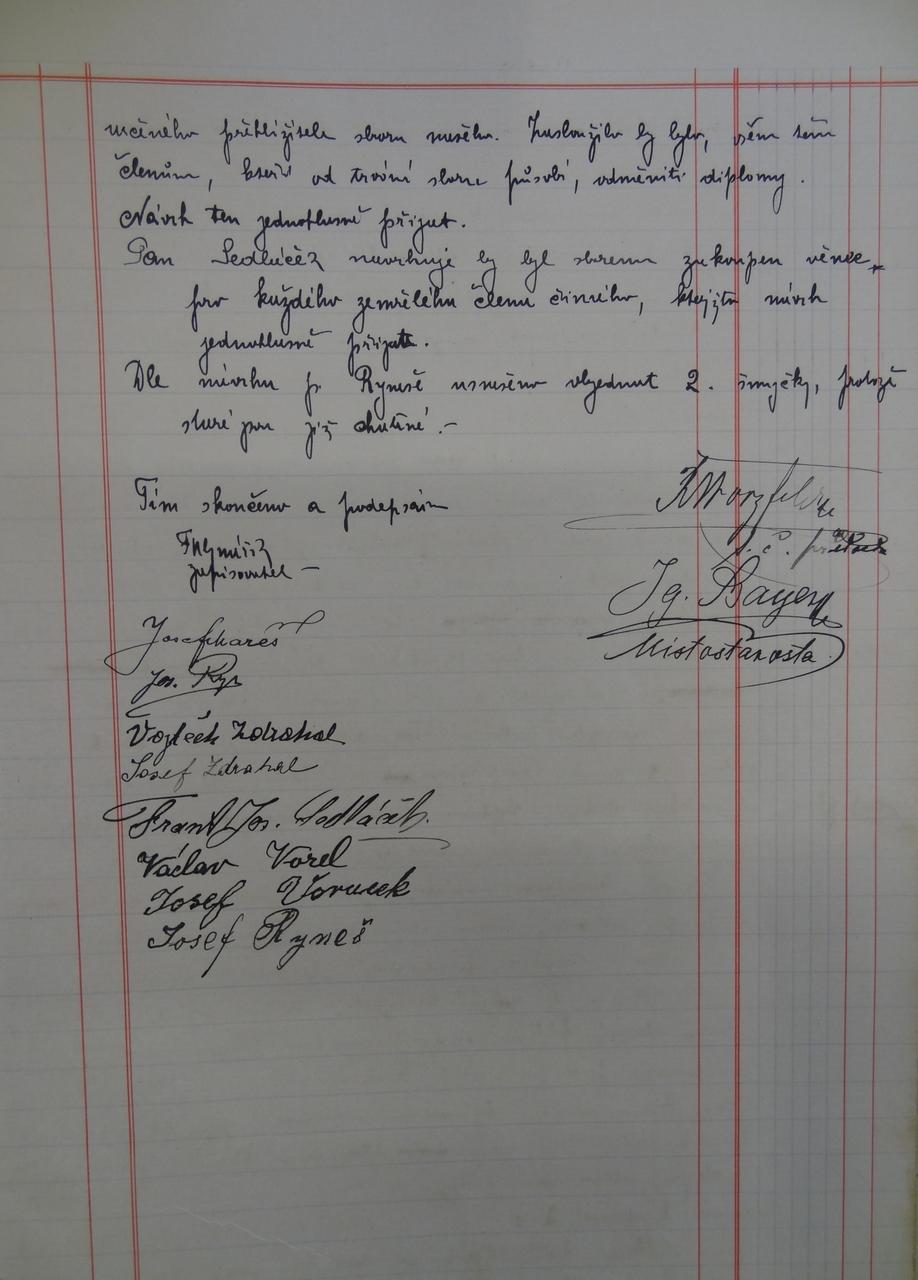 členům, kteří od trvání sboru působí, odměniti diplomy.
Návrh ten jednohlasně přijat.
Pan Sedláček navrhuje by byl sborem zakoupen věnec
pro každého zemřelého člena činného, kterýžto návrh
jednohlasně přijat.
Dle návrhu p. Ryneše usneseno objednat 2. smyčky, protože
staré jsou již chatrné.-
Tím skončeno a podepsán
zapisovatel -
Ig. Bayer
Místostarosta
Josef Mareš
Jos.
Vojtěch Zdrahal
Josef Zdrahal
Frant. Jos. Sedláček.
Václav Vorel
Josef Voruček
Josef Ryneš